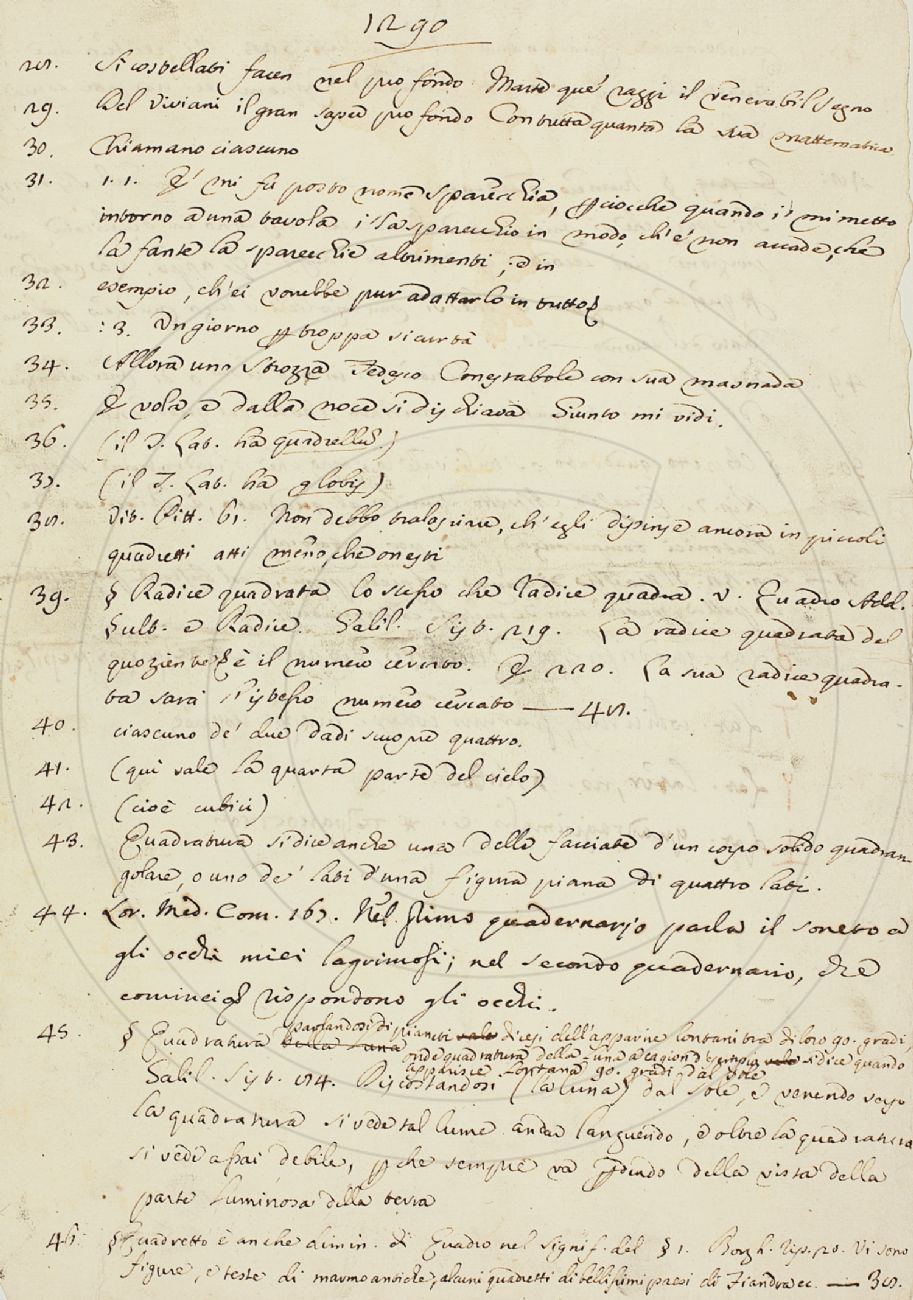 1290
28. Sì costellati facen nel profondo Marte que' raggi il venerabil segno
29. Del Viviani il gran saper profondo Con tutta quanta la sua mattematica
30. Chiamano ciascuno
31. 1. 1. E' mi fu posto nome sparecchia, perciocchè quando i' mi metto
intorno a una tavola i' la sparecchio in modo, ch'e' non accade, che
la fante la sparecchie altrimenti, e in
32. esempio, ch'ei vorrebbe pur adattarlo in tutto
33. : 3. Un giorno per troppa sicurtà
34. Allora uno Strozza Tedesco Conestabole con sua masnada
35. E vola, e dalla noce si dischiava Giunto mi vidi.
36. (il T. Lab. ha quadrellis)
37. (il T. Lab. ha globis)
38. Vit. Pitt. 61. Non debbo tralasciare, ch'egli dipinse ancora in piccoli
quadretti atti meno, che onesti
39. § Radice quadrata lo stesso che Radice quadra. v. Quadro Add.
Sust. e Radice. Galil. Sist. 219. La radice quadrata del
quoziente è il numero cercato. E 220. La sua radice quadra-
ta sarà l'istesso numero cercato — 48.
40. ciascuno de' due dadi scuopre quattro.
41. (qui vale la quarta parte del cielo)
42. (cioè cubici)
43. Quadratura si dice anche una delle facciate d'un corpo solido quadran-
golare, o uno de' lati d'una figura piana di quattro lati.
44. Lor. Med. Com. 167. Nel primo quadernario parla il soneto a
gli occhi miei lagrimosi; nel secondo quadernario, che
comincia rispondono gli occhi.
45. § Quadratura della Luna parlandosi di pianeti vale dicesi dell'apparire lontani tra di loro 90. gradi,
onde quadratura della Luna a cagion d'esempio vale si dice quando
apparisce lontana 90. gradi dal sole
Galil. Sist. 84. Discostandosi (la luna) dal sole, e venendo verso
la quadratura si vede tal lume andar languendo, e oltre la quadratura
si vede assai debile, perchè sempre va perdendo della vista della
parte luminosa della terra
46. § Quadretto è anche dimin. di Quadro nel signif. del § 1. Borgh. Rip. 20. Vi sono
figure, e teste di marmo antiche, alcuni quadretti di bellissimi paesi di Fiandra ec. — 38.